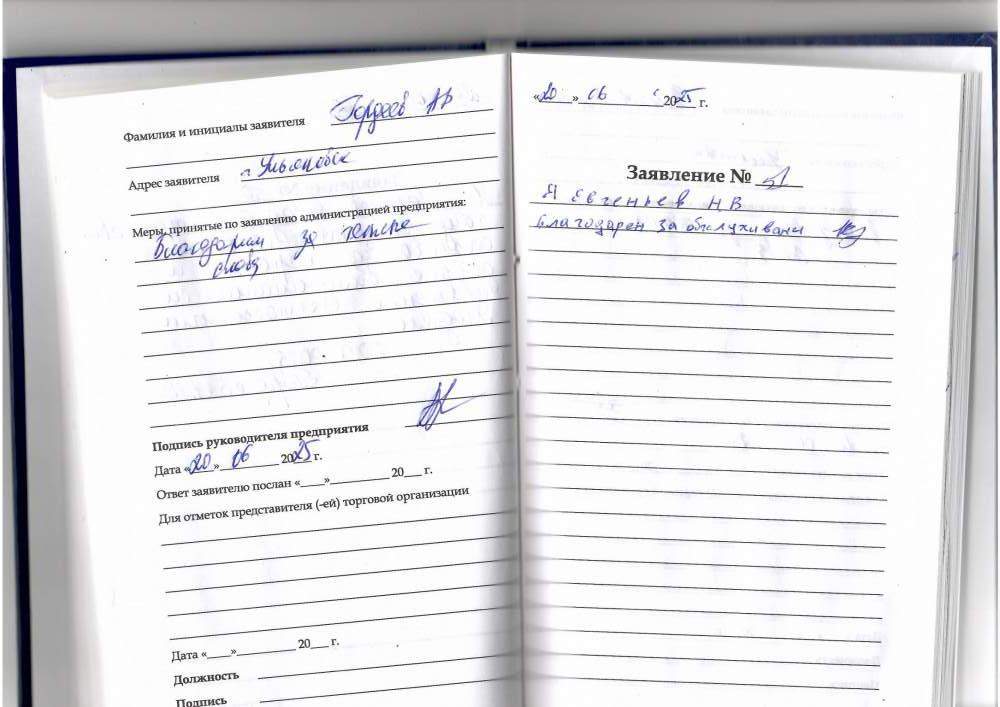 Фамилия и инициалы заявителя Гордеев АВ
Адрес заявителя г. Ульяновск
Меры, принятые по заявлению администрацией предприятия:
Благодарим за теплые
слова
Подпись руководителя предприятия
Дата «20» 06 2025 г.
Ответ заявителю послан «____»__________ 20___ г.
Для отметок представителя (-ей) торговой организации
Дата «____»__________ 20___ г.
Должность
Подпись
«20» 06 2025 г.
Заявление № 51
Я Евгеньев НВ
Благодарен за обслуживани